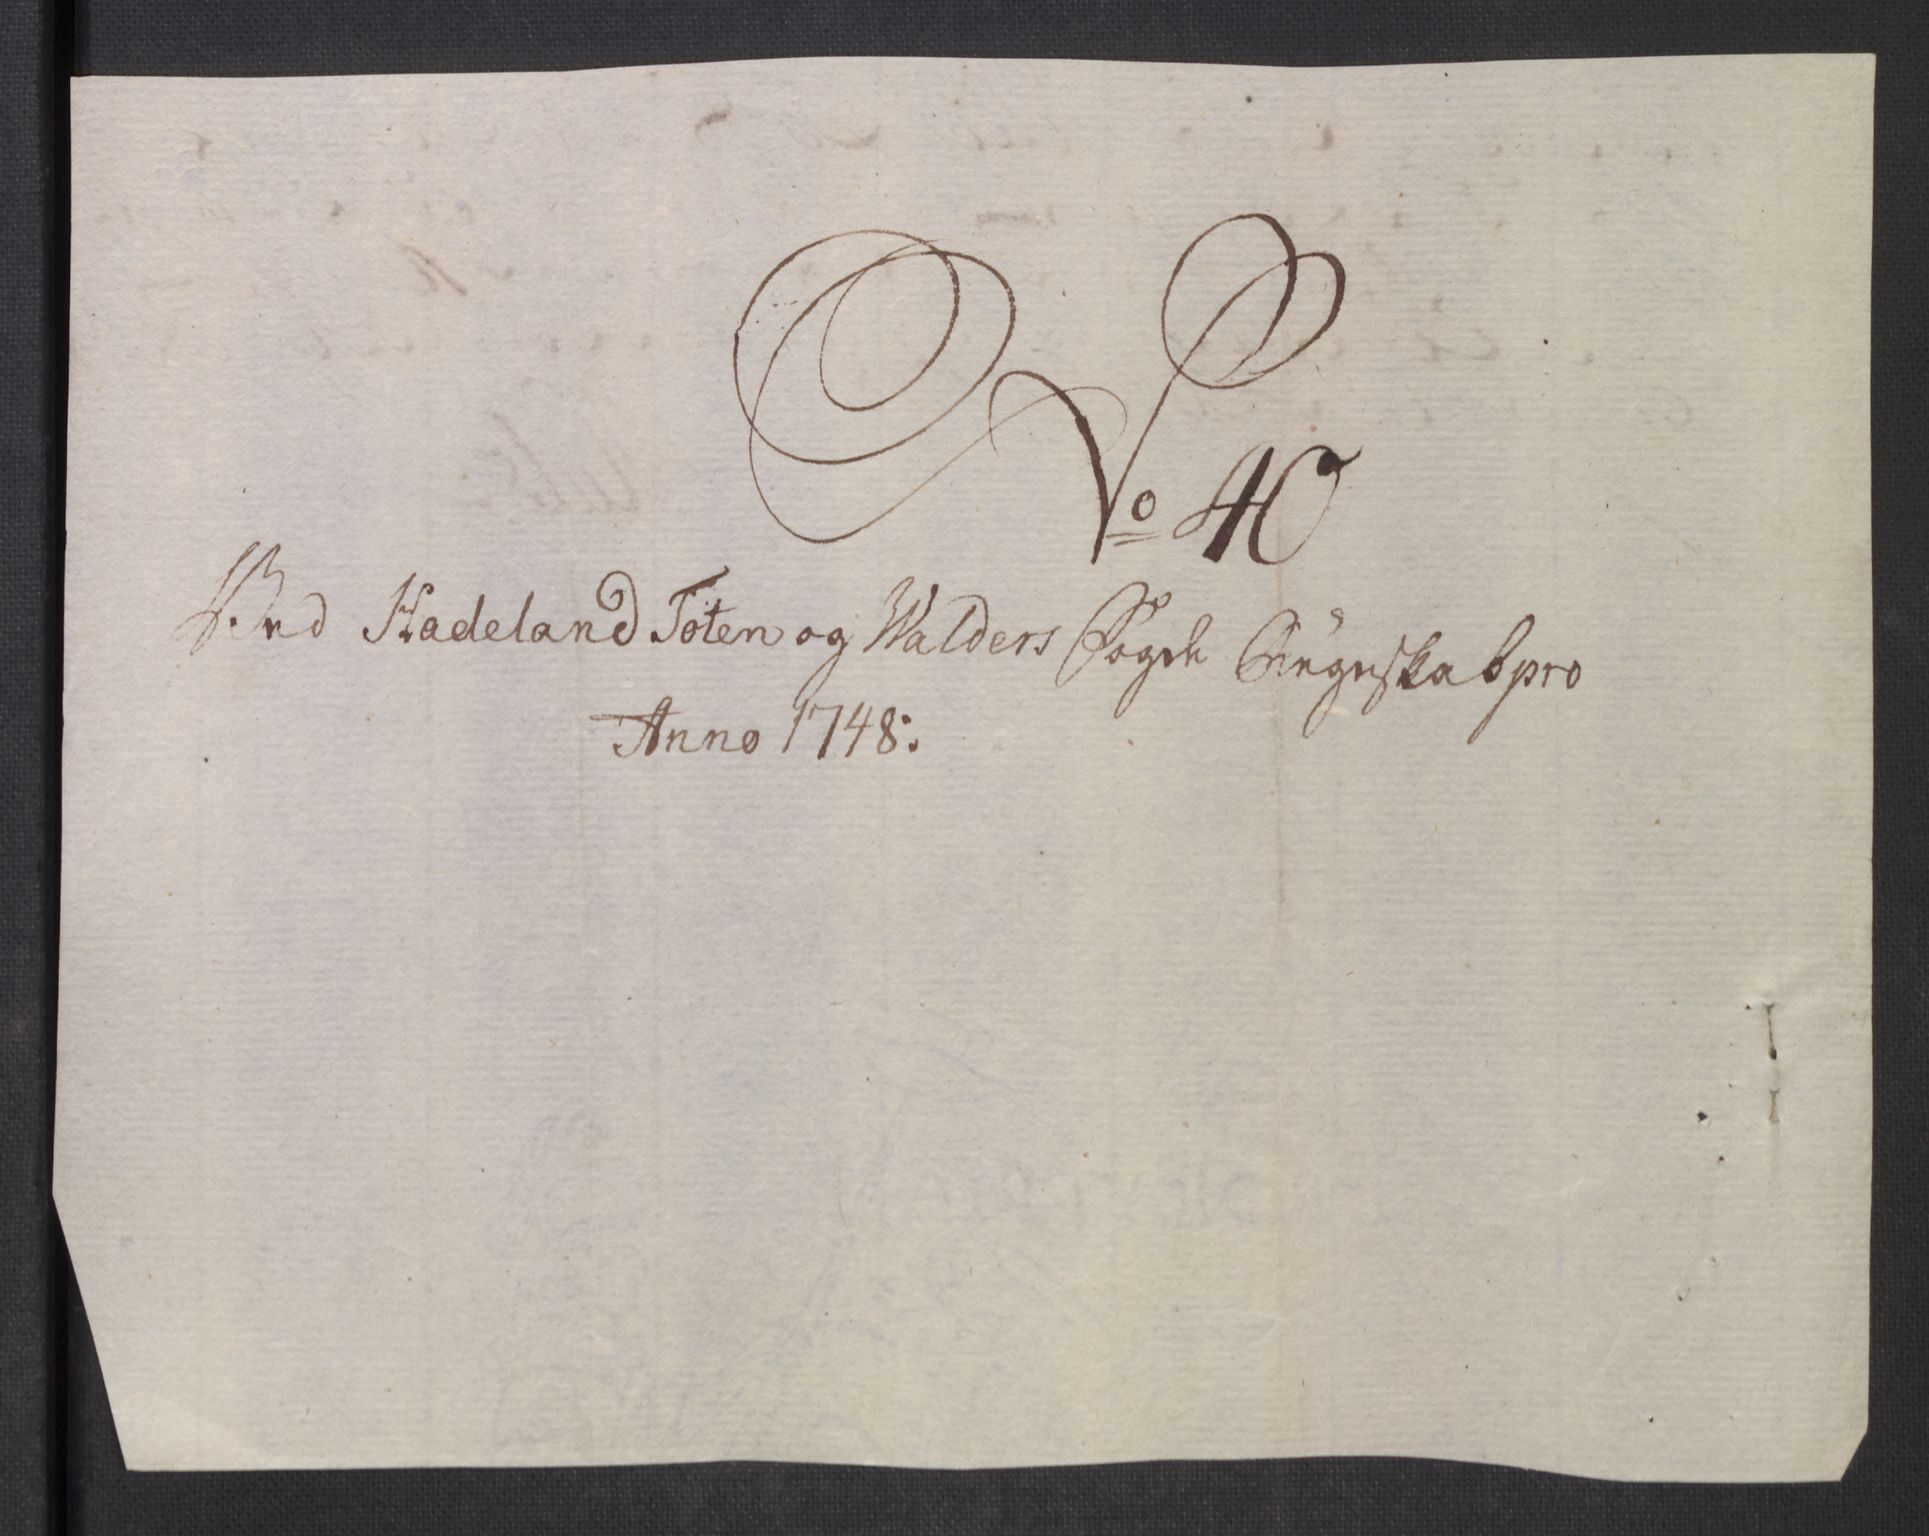 No 40
Ved Hadeland Toten og Walders Fogde Regnskab pro
Anno 1748: